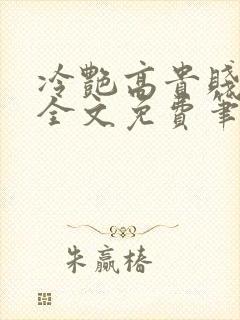 冷艷高貴賤
全文免費筆
朱贏椿